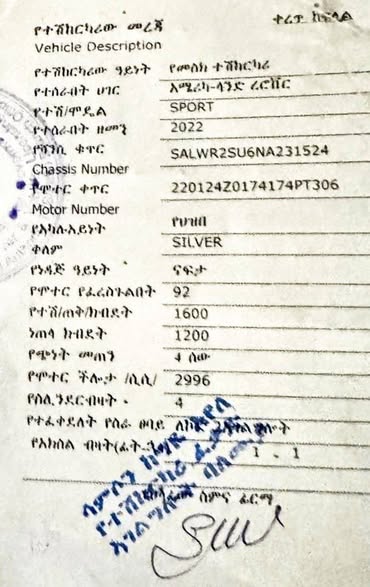 ተራ ቁ
የተሽከርካሪው መረጃ
Vehicle Description
የተሽከርካሪው ዓይነት የመስክ ተሽከርካሪ
የተሰራበት ሀገር አሜሪካ-ላንድ ሮቨር
የተሽ/ሞዴል SPORT
የተሰራበት ዘመን 2022
የሻንሲ ቁጥር SALWR2SU6NA231524
Chassis Number
የሞተር ቁጥር 220124Z0174174PT306
Motor Number
የአካሉ አይነት የህዝብ
ቀለም SILVER
የነዳጅ ዓይነት ናፍታ
የሞተር የፈረስጉልበት 92
የተሽ/ጠቅ/ክብደት 1600
ነጠላ ክብደት 1200
የጭነት መጠን 4 ሰው
የሞተር ችሎታ /ሲሲ/ 2996
የሲሊንደር ብዛት 4
የተፈቀደለት የስራ ፀባይ
የአክሰል ብዛት 1 . 1
ስምና ፊርማ